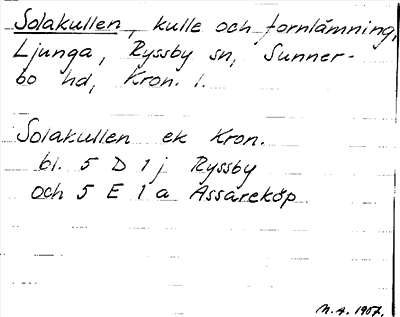 Solakullen, kulle och fornlämning,
Ljunga, Ryssby sn, Sunner-
bo hd, Kron. l.
Solakullen ek Kron.
bl. 5 D 1 j Ryssby
och 5 E 1 a Assareköp
M. A. 1957.